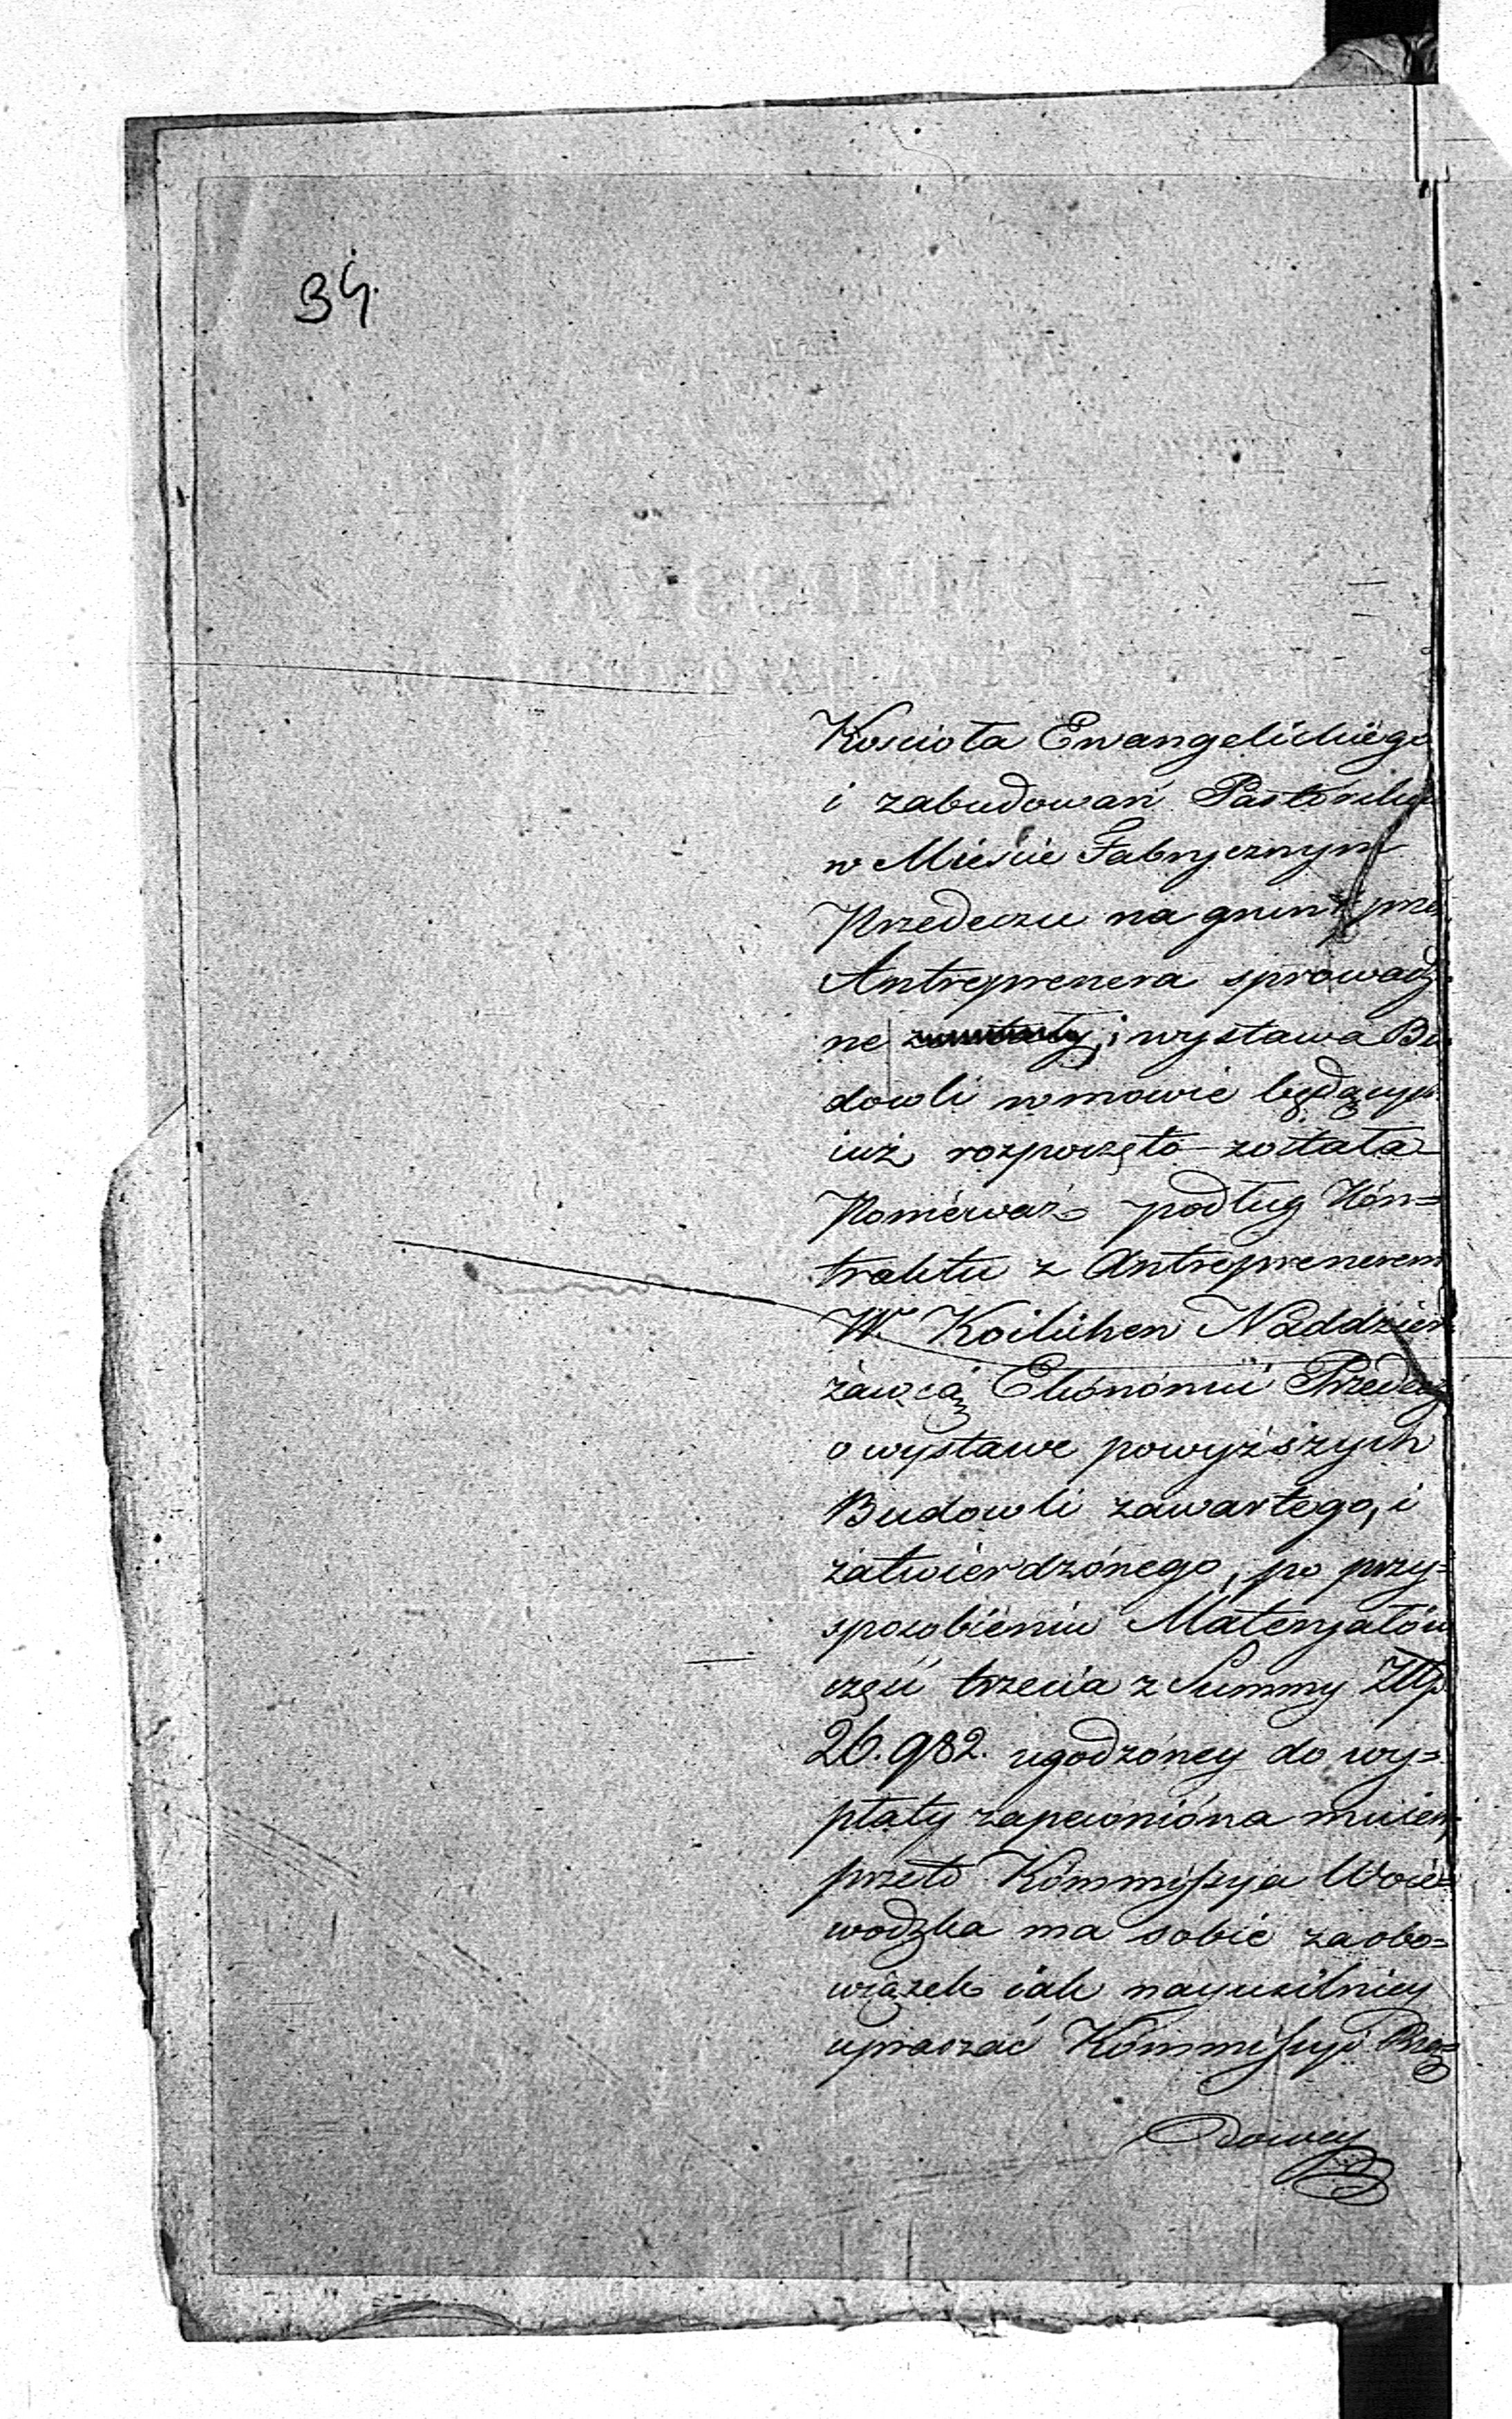 34.
Koscioła Ewangelickiego
i zabudowań Pastorskich
w Mieście Fabrycznym
Przedeczu na grunt przez
Antreprenera sprowadzo
ne zostały, i wystawa Bu
dowli w mowie będących
iuż rozpoczęto została
Ponieważ podług Kón=
traktu z Antreprenerem
W. Naddzier
żawcą Ekonómii Przedecz
o wystawe powyższych
Budowli zawartego, i
zatwierdzónego, po przy=
sposobieniu Materyałów
częsć trzecia z Summy Złp.
26.982. ugodzóney do wy=
płaty zapewnióna
przeto Kómmissyia Woie=
wodzka ma sobie za obo=
wiązek iak nayusilniey
upraszać Kómmissyi Rzą=
dowey